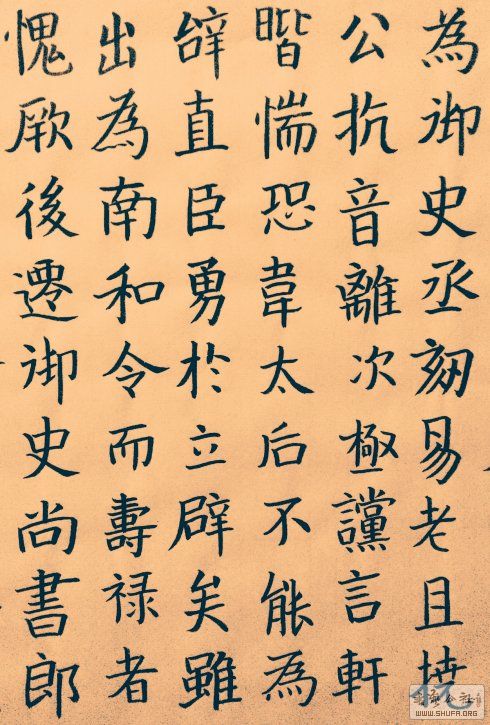 為御史丞劾易老且撓
公抗音離次極讜言軒
階惴恐韋太后不能為
辭直臣勇於立辟矣雖
出為南和令而壽禄者
愧厥後遷御史尚書郎
WWW.SHUFA.ORG